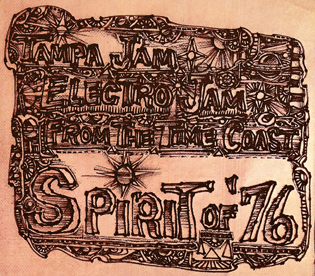 TAMPA JAM
ELECTRO JAM
FROM THE TIME COAST
SPIRIT OF '76